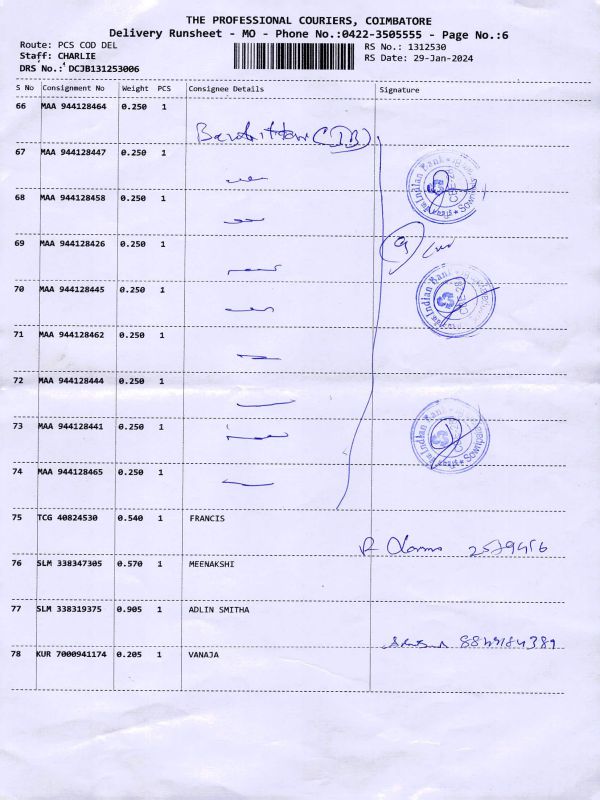 THE PROFESSIONAL COURIERS, COIMBATORE
Delivery Runsheet - MO - Phone No.:0422-3505555 - Page No.:6
Route: PCS COD DEL RS No.: 1312530
Staff: CHARLIE RS Date: 29-Jan-2024
DRS No.: DCJB131253006
S No Consignment No Weight PCS Consignee Details Signature
66 MAA 944128464 0.250 1
(IB)
67 MAA 944128447 0.250 1
68 MAA 944128458 0.250 1
69 MAA 944128426 0.250 1
70 MAA 944128445 0.250 1
71 MAA 944128462 0.250 1
72 MAA 944128444 0.250 1
73 MAA 944128441 0.250 1
74 MAA 944128465 0.250 1
75 TCG 40824530 0.540 1 FRANCIS
76 SLM 338347305 0.570 1 MEENAKSHI
77 SLM 338319375 0.905 1 ADLIN SMITHA
78 KUR 7000941174 0.205 1 VANAJA
Indian Bank
Indian Bank
Indian Bank